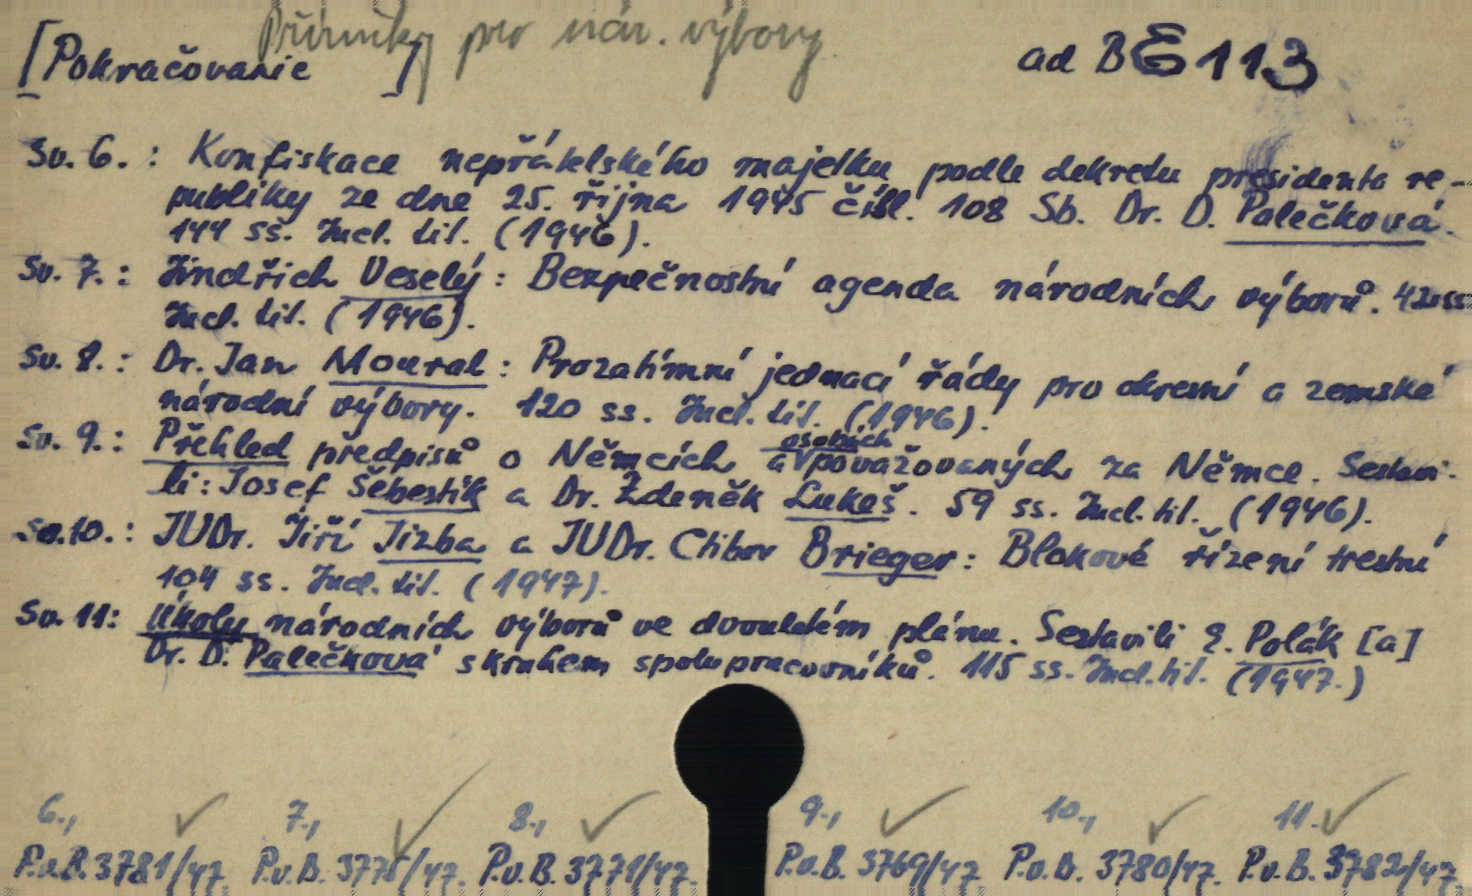 Příručky pro nár. výbory
[Pokračovanie] ad BE 113
Sv. 6. : Konfiskace nepřátelského majetku podle dekretu presidenta re-
publiky ze dne 25. října 1945 čísl. 108 Sb. Dr. D. Palečková.
144 ss. Incl. tit. (1946).
Sv. 7. : Jindřich Veselý : Bezpečnostní agenda národních výborů. 42 ss.
Incl. tit. (1946).
Sv. 8. : Dr. Jan Moural : Prozatímní jednací řády pro okresní a zemské
národní výbory. 120 ss. Incl. tit. (1946).
osobách
Sv. 9. : Přehled předpisů o Němcích a považovaných za Němce. Sestavi-
li : Josef Šebestík a Dr. Zdeněk Lukeš. 59 ss. Incl. tit. (1946).
Sv. 10. : JUDr. Jiří Jizba a JUDr. Ctibor Brieger : Blokové řízení trestní
104 ss. Incl. tit. (1947).
Sv. 11 : Úkoly národních výborů ve dvouletém plánu. Sestavili E. Polák [a]
Dr. D. Palečková s kruhem spolupracovníků. 115 ss. Incl. tit. (1947.)
6., 7., 8., 9., 10., 11.
P.v.B. 3781/47 P.v.B. 3775/47. P.v.B. 3771/47. P.v.B. 3769/47 P.v.B. 3780/47. P.v.B. 3782/47.